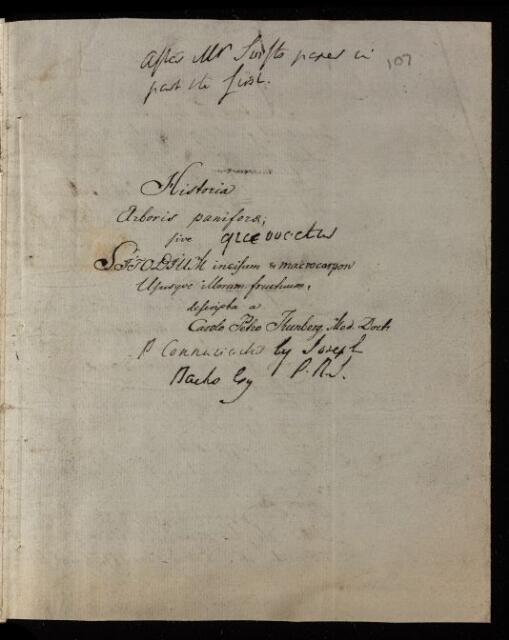 After Mr Swifts paper in
part the first.
107
Historia
Arboris paniferæ;
sive quæ vocatur
SITODIUM incisum & macrocarpon
Ususque illorum fructuum,
descripta a
Carolo Petro Thunberg, Med. Doct.
Communicated by Joseph
Banks Esq P.R.S.